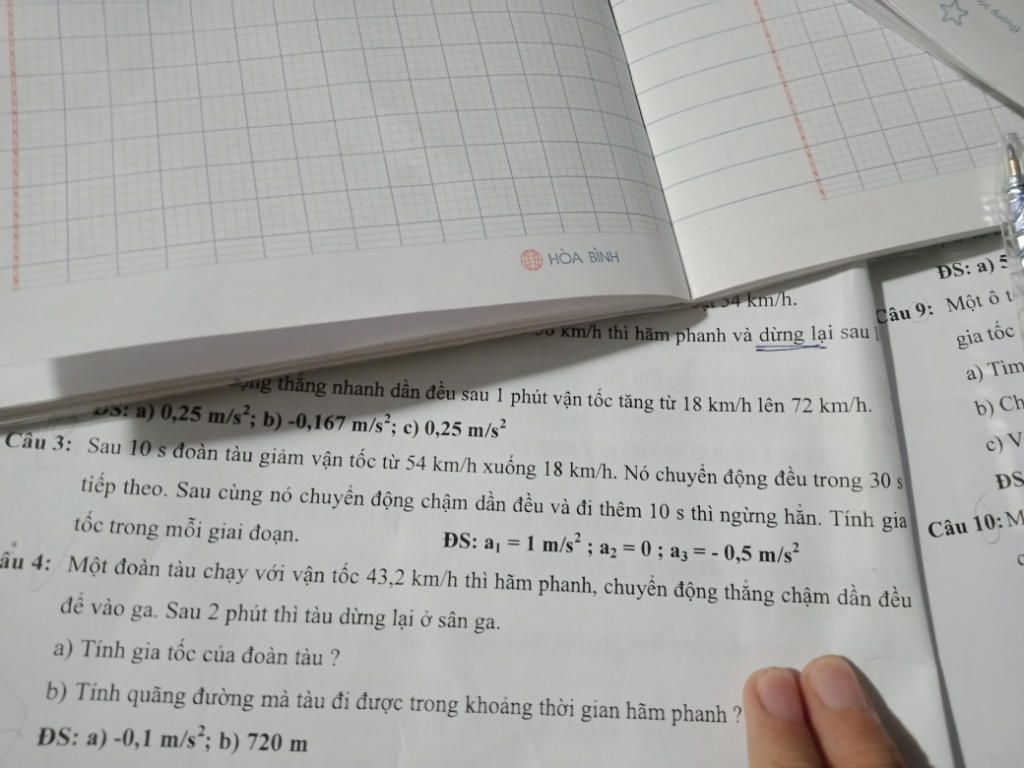 HÒA BÌNH
54 km/h.
km/h thì hãm phanh và dừng lại sau
thẳng nhanh dần đều sau 1 phút vận tốc tăng từ 18 km/h lên 72 km/h.
ĐS: a) 0,25 m/s²; b) -0,167 m/s²; c) 0,25 m/s²
Câu 3: Sau 10 s đoàn tàu giảm vận tốc từ 54 km/h xuống 18 km/h. Nó chuyển động đều trong 30 s
tiếp theo. Sau cùng nó chuyển động chậm dần đều và đi thêm 10 s thì ngừng hẳn. Tính gia
tốc trong mỗi giai đoạn.
ĐS: a₁ = 1 m/s² ; a₂ = 0 ; a₃ = - 0,5 m/s²
âu 4: Một đoàn tàu chạy với vận tốc 43,2 km/h thì hãm phanh, chuyển động thẳng chậm dần đều
để vào ga. Sau 2 phút thì tàu dừng lại ở sân ga.
a) Tính gia tốc của đoàn tàu ?
b) Tính quãng đường mà tàu đi được trong khoảng thời gian hãm phanh ?
ĐS: a) -0,1 m/s²; b) 720 m
ĐS: a) 5
Câu 9: Một ô t
gia tốc
a) Tìm
b) Ch
c) V
ĐS
Câu 10: M